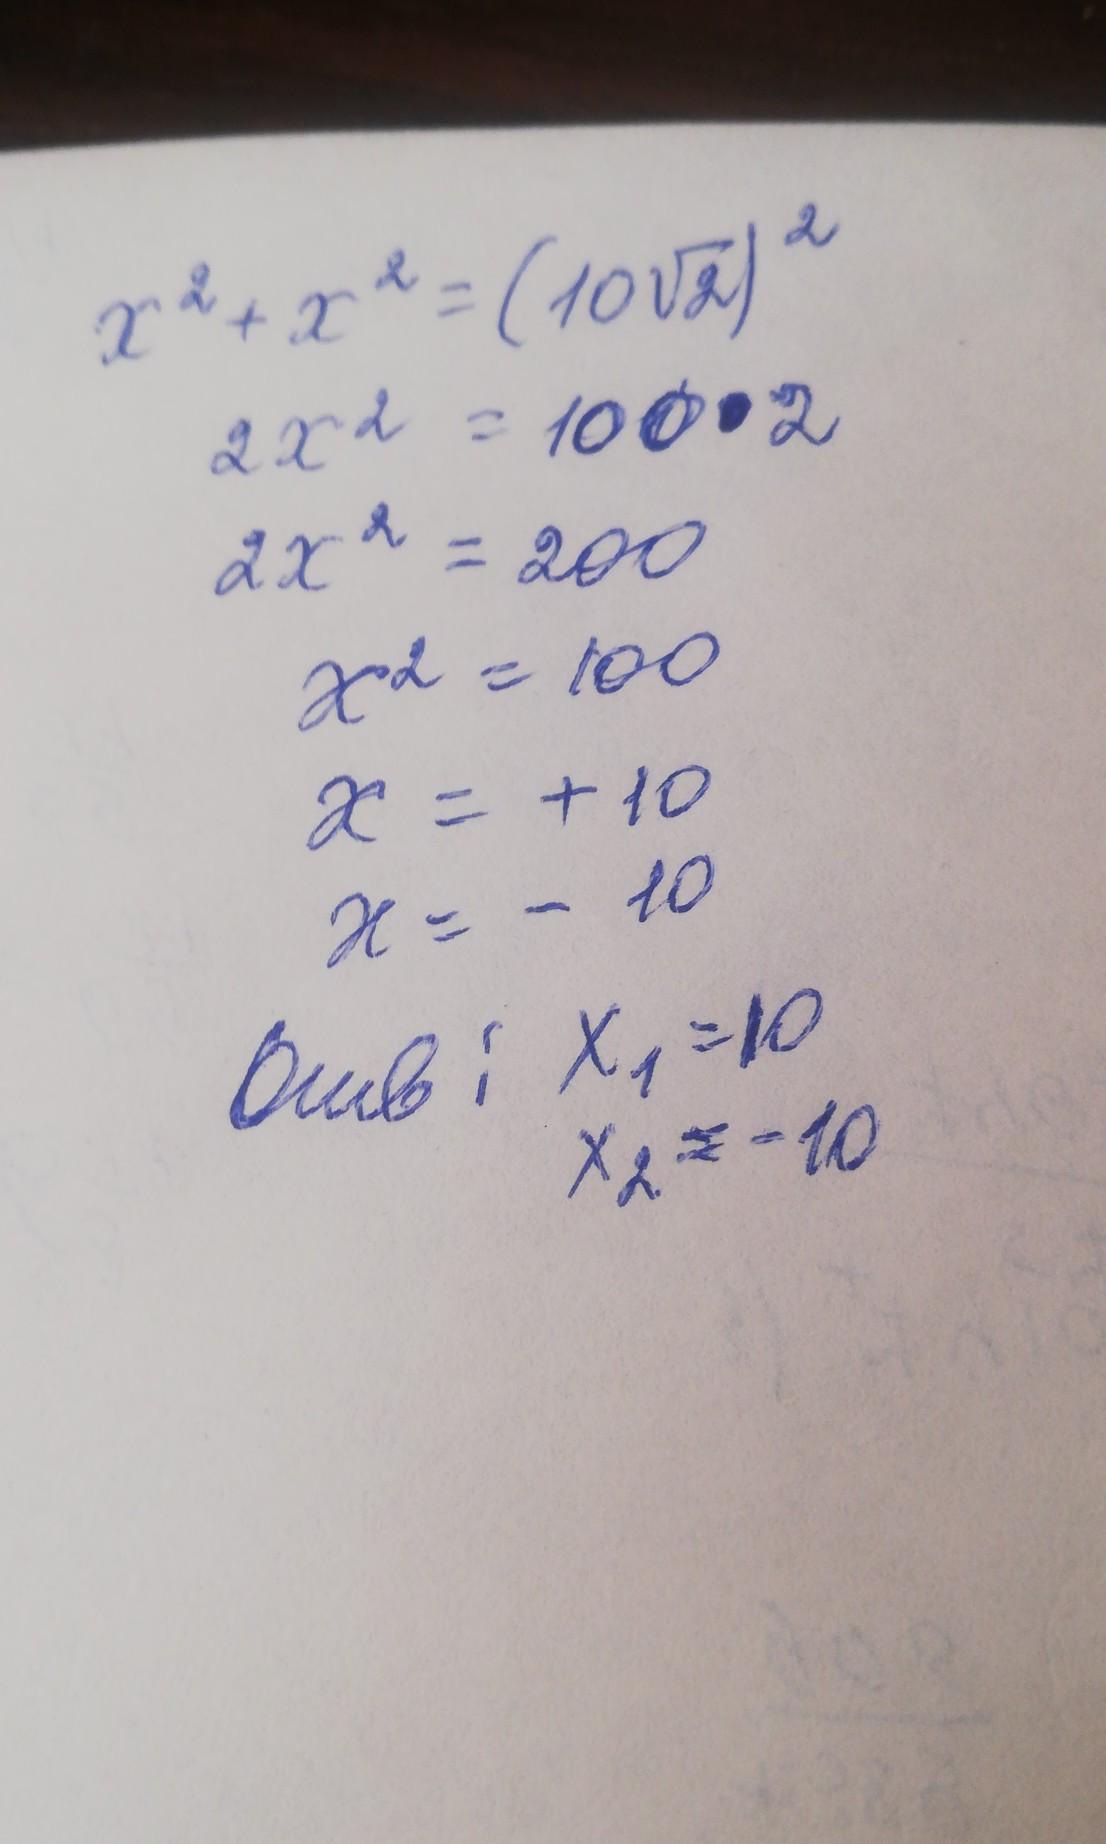 x² + x² = (10√2)²
2x² = 100 • 2
2x² = 200
x² = 100
x = + 10
x = - 10
Отв : x₁ = 10
x₂ = -10